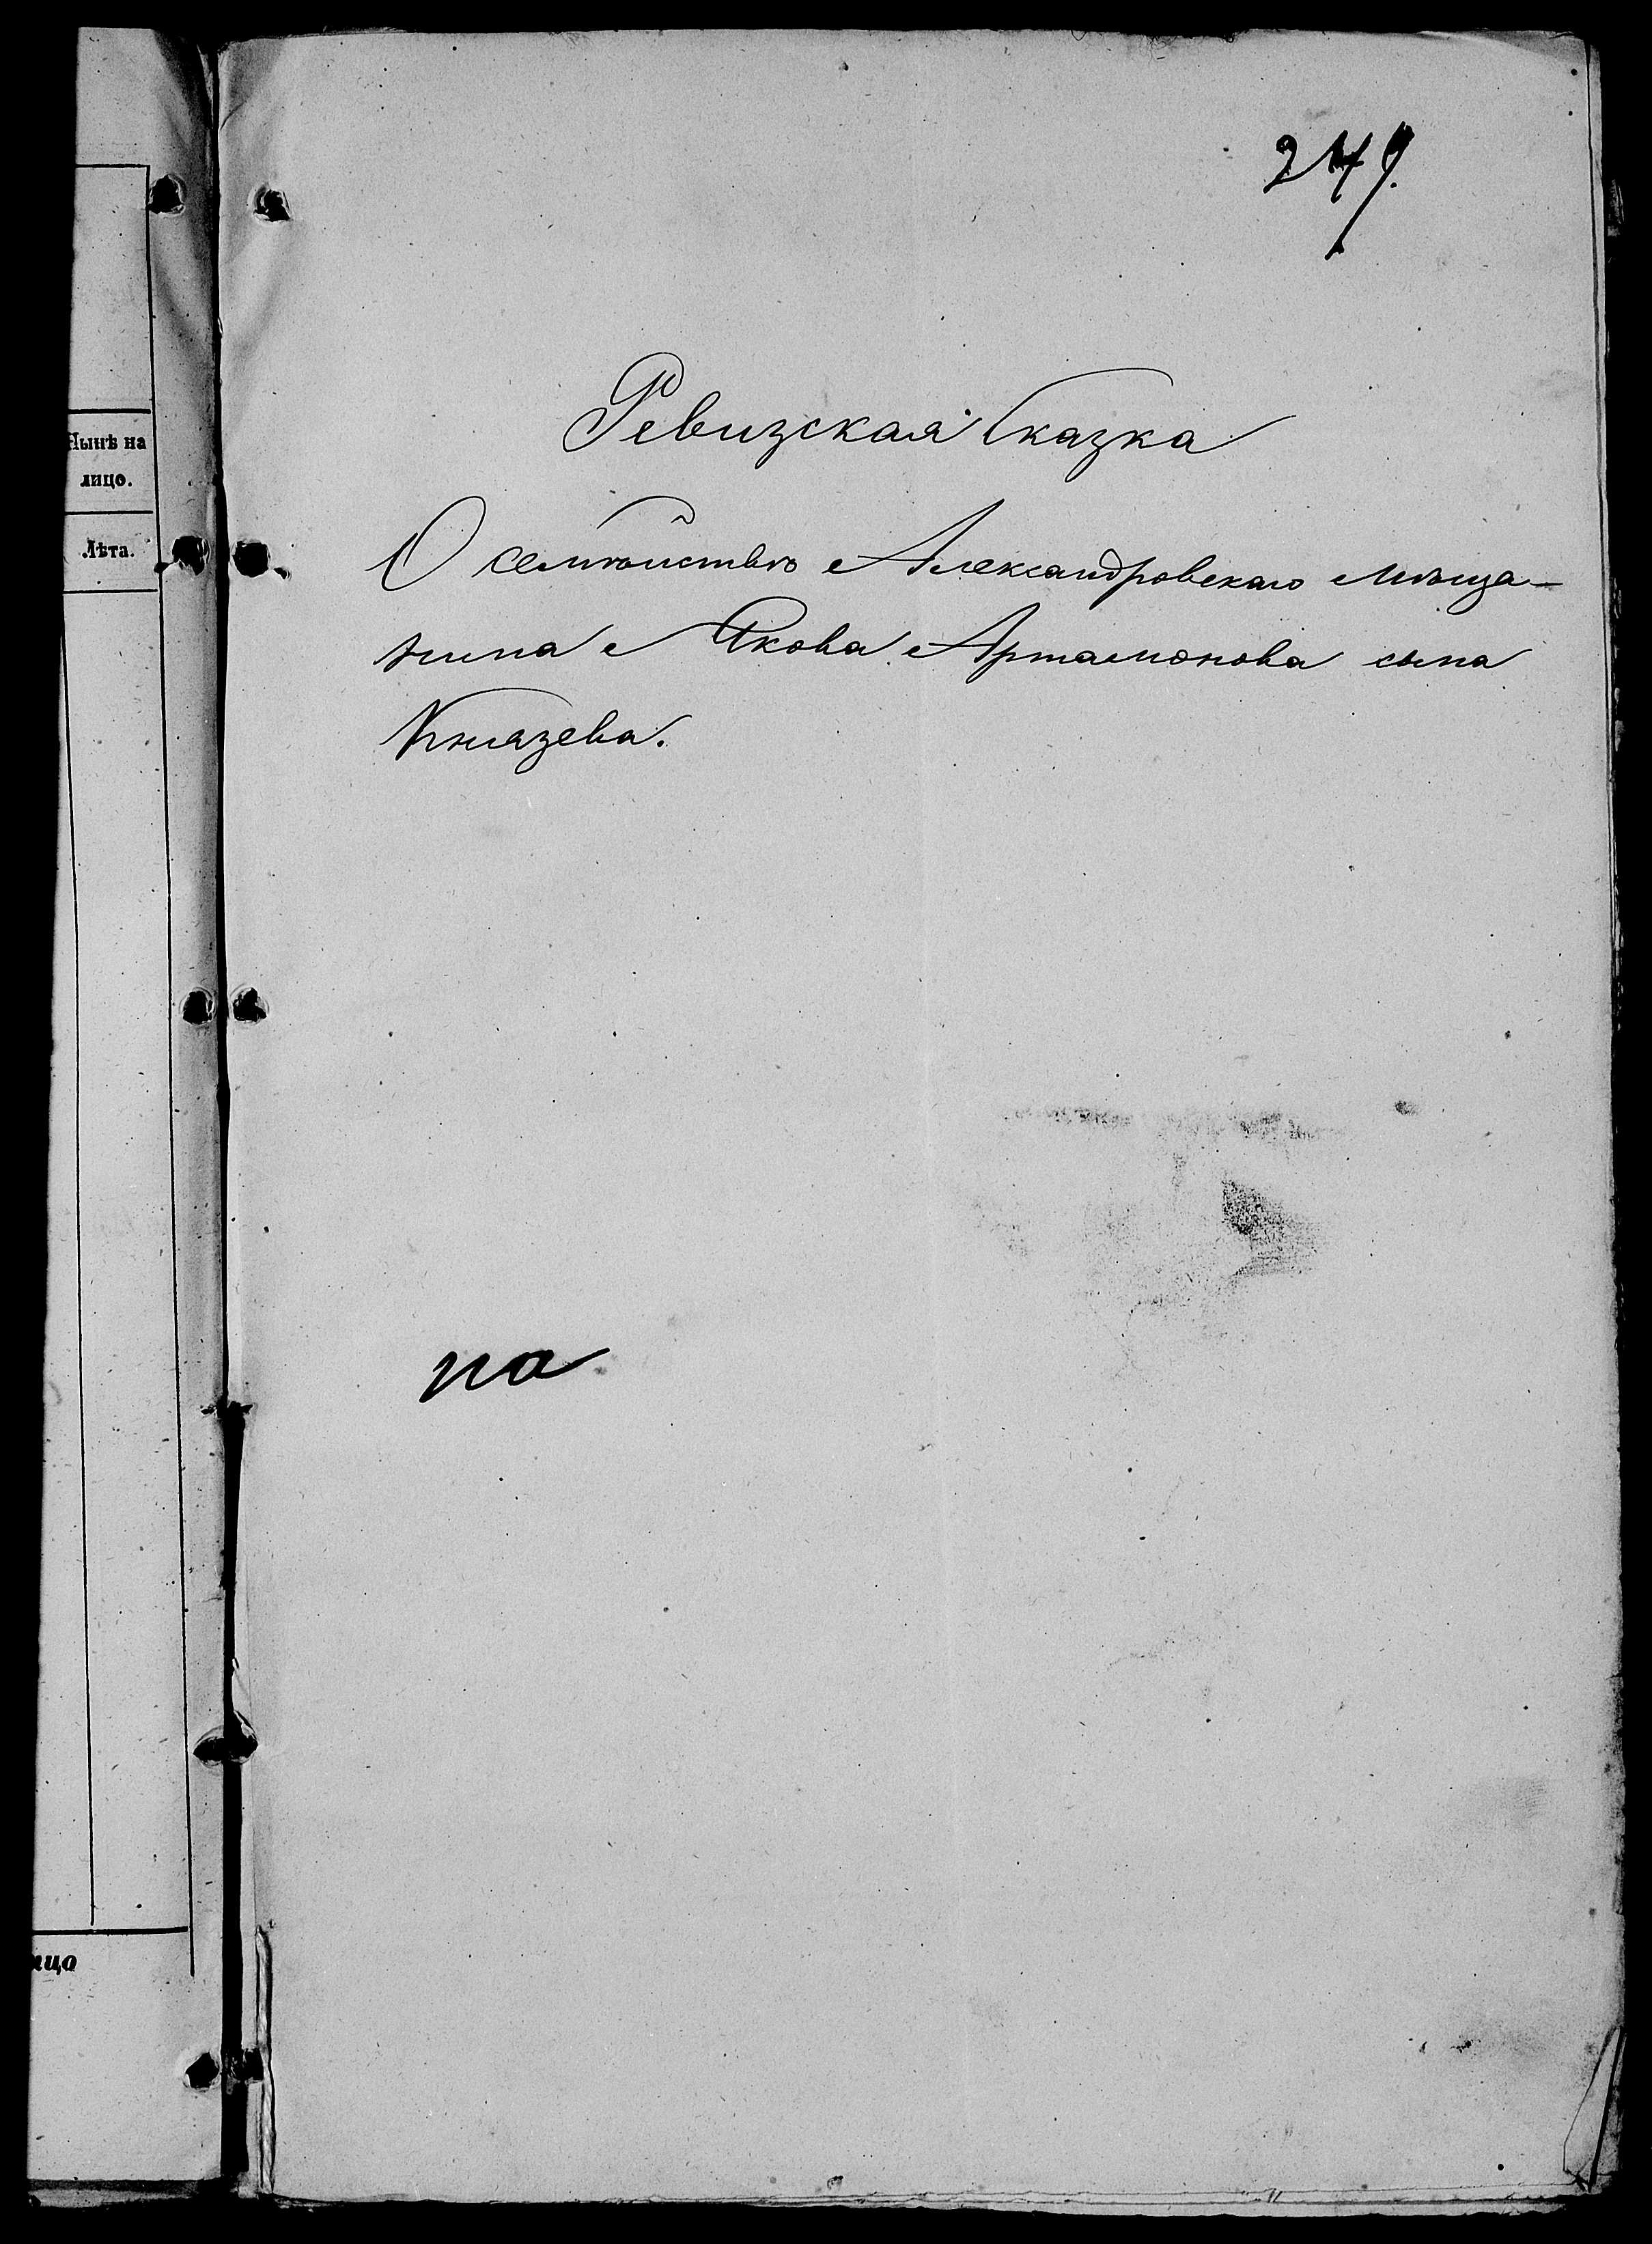 Нынѣ на
лицо.
Лѣта.
ицо
247.
Ревизская Сказка
О семѣйствѣ Александровскаго мѣща-
нина Якова Артамонова сына
Князева.
на